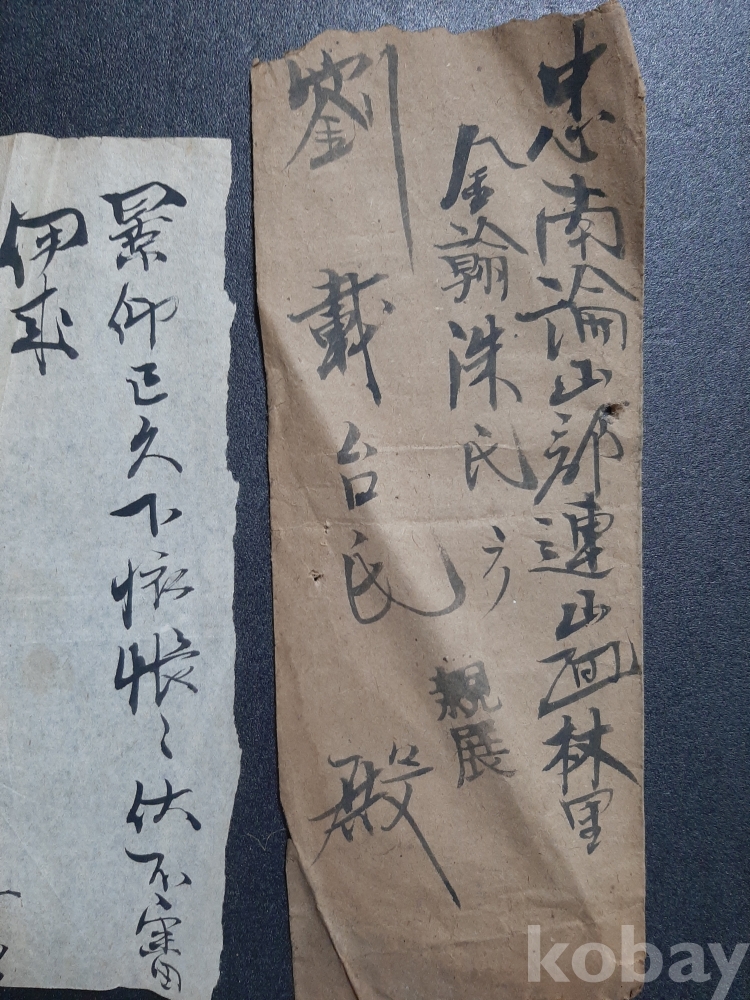 忠南論山郡連山面林里
金瀚洙氏方
親展
劉載台氏殿
景仰已久下懷悵〻伏不審
伊來
kobay